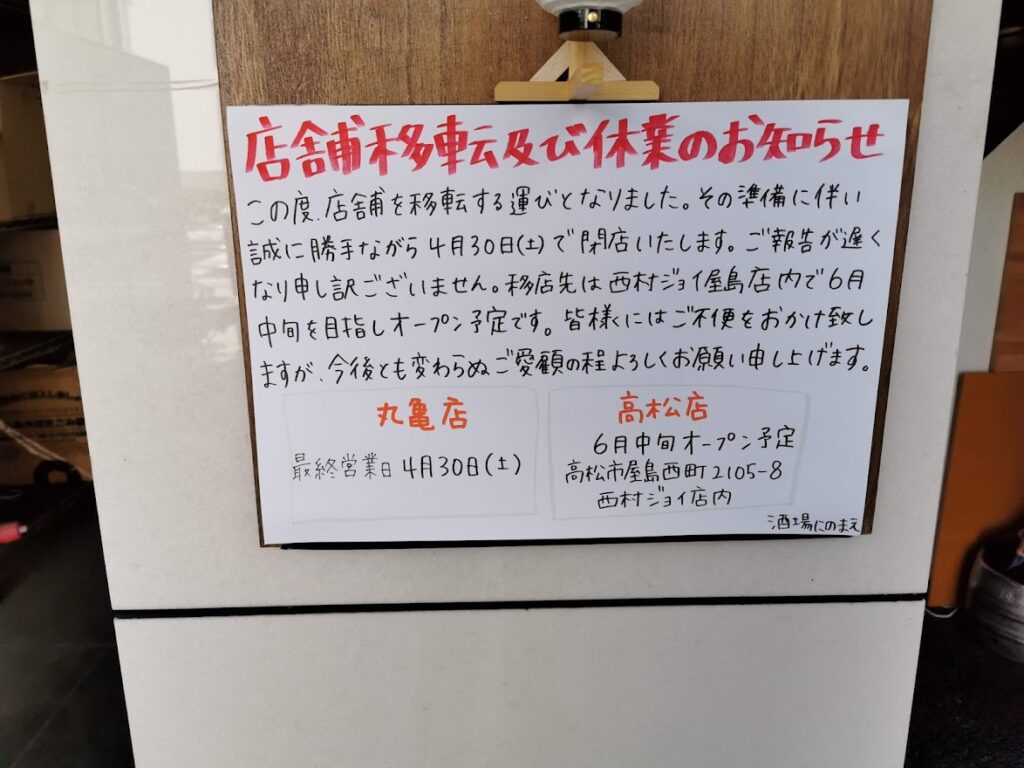 店舗移転及び休業のお知らせ
この度、店舗を移転する運びとなりました。その準備に伴い
誠に勝手ながら4月30日(土)で閉店いたします。ご報告が遅く
なり申し訳ございません。移店先は西村ジョイ屋島店内で6月
中旬を目指しオープン予定です。皆様にはご不便をおかけ致し
ますが、今後とも変わらぬご愛顧の程よろしくお願い申し上げます。
丸亀店
最終営業日 4月30日(土)
高松店
6月中旬オープン予定
高松市屋島西町2105-8
西村ジョイ店内
酒場にのまえ